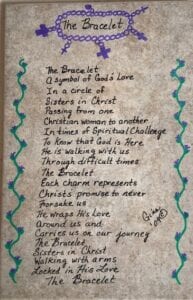 The Bracelet
The Bracelet
A symbol of God's Love
In a circle of
Sisters in Christ
Passing from one
Christian woman to another
In times of Spiritual Challenge
To know that God is Here
He is walking with us
Through difficult times
The Bracelet
Each charm represents
Christ's promise to never
Forsake us
He wraps His Love
Around us and
Carries us on our journey
The Bracelet
Sisters in Christ
Walking with arms
Locked in His Love
The Bracelet